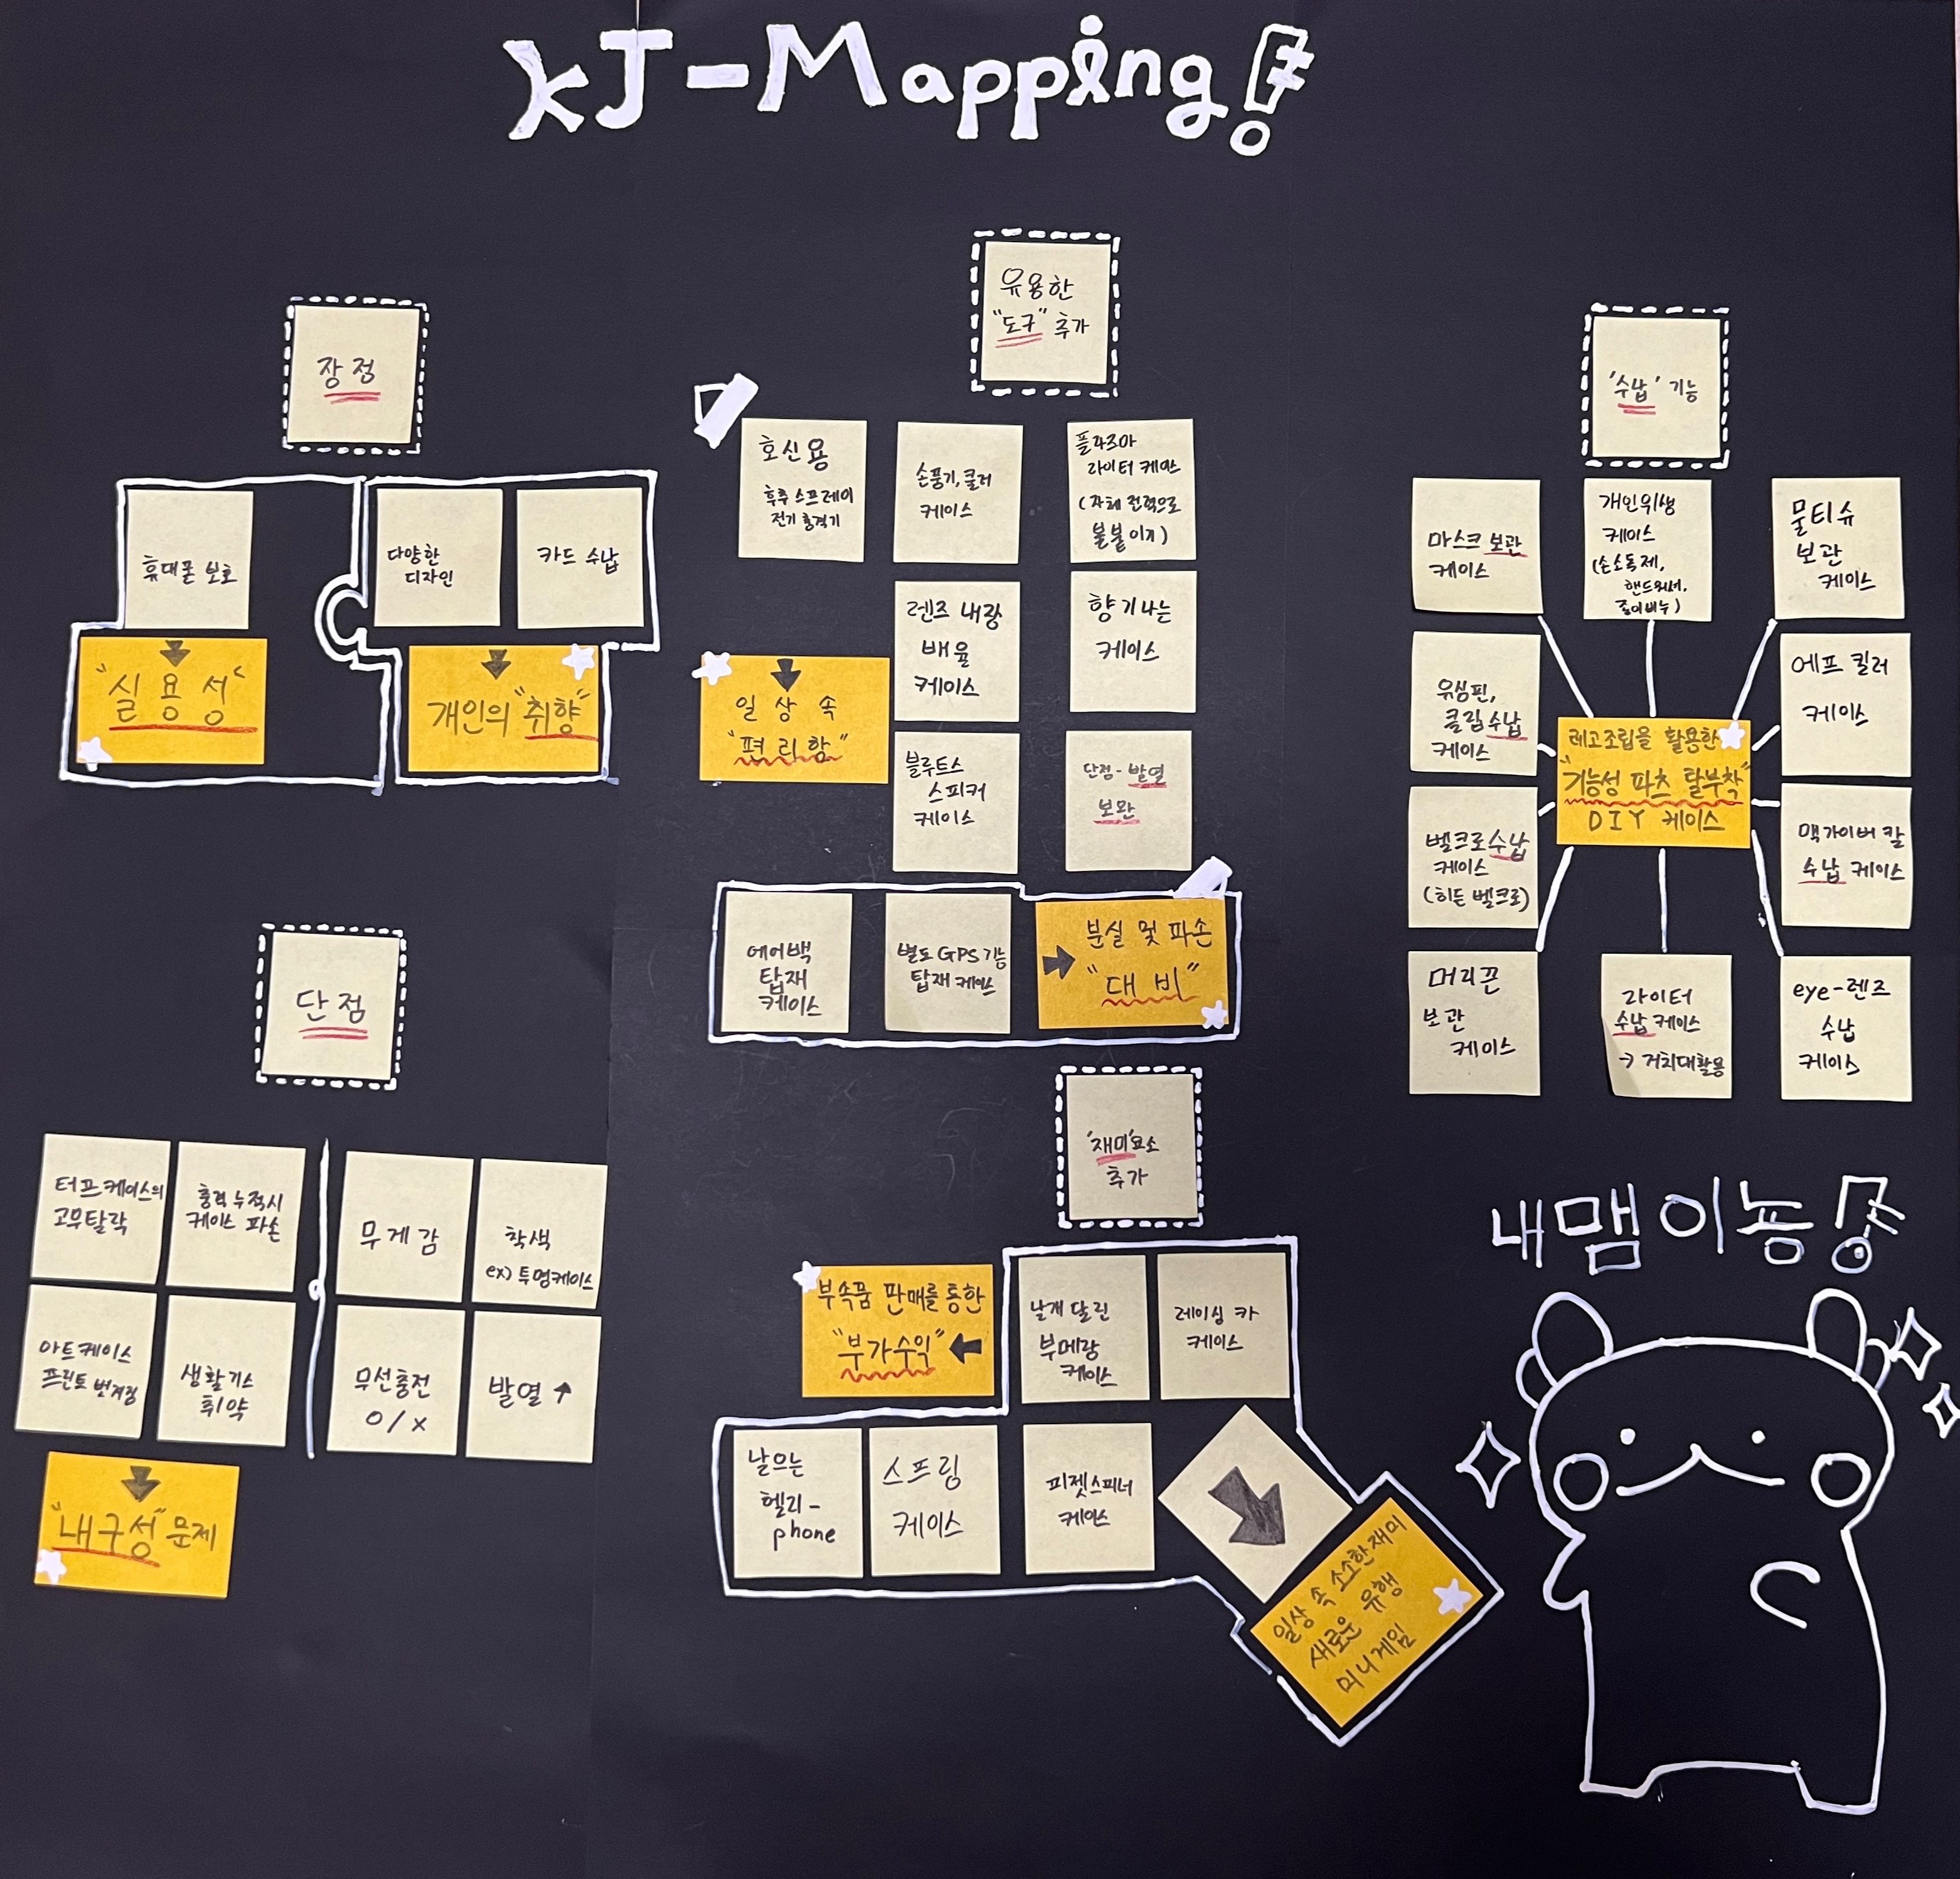 KJ-Mapping!
장점
휴대폰 보호
다양한
디자인
카드 수납
"실용성"
개인의 "취향"
단점
터프케이스의
고무탈락
충격 누적시
케이스 파손
무게감
착색
ex) 투명케이스
아트케이스
프린트 벗겨짐
생활기스
취약
무선충전
O/X
발열↑
"내구성" 문제
유용한
"도구" 추가
호신용
후추 스프레이
전기 충격기
손풍기, 쿨러
케이스
플라즈마
라이터 케이스
(자체 전력으로
불붙이기)
렌즈 내장
배율
케이스
향기나는
케이스
일상 속
"편리함"
블루트스
스피커
케이스
단점-발열
보완
에어백
탑재
케이스
별도 GPS 기능
탑재 케이스
분실 및 파손
"대비"
'재미'요소
추가
부속품 판매를 통한
"부가수익"
날개 달린
부메랑
케이스
레이싱 카
케이스
날으는
헬리-
phone
스프링
케이스
피젯스피너
케이스
일상 속 소소한 재미
새로운 유행
미니게임
'수납' 기능
마스크 보관
케이스
개인위생
케이스
(손소독제,
핸드워시,
종이비누)
물티슈
보관
케이스
유심핀,
클립 수납
케이스
에프킬러
케이스
레고조립을 활용한
"기능성 파츠 탈부착"
DIY 케이스
벨크로 수납
케이스
(히든 벨크로)
맥가이버 칼
수납 케이스
머리끈
보관
케이스
라이터
수납 케이스
→ 거치대활용
eye-렌즈
수납
케이스
내맴이농